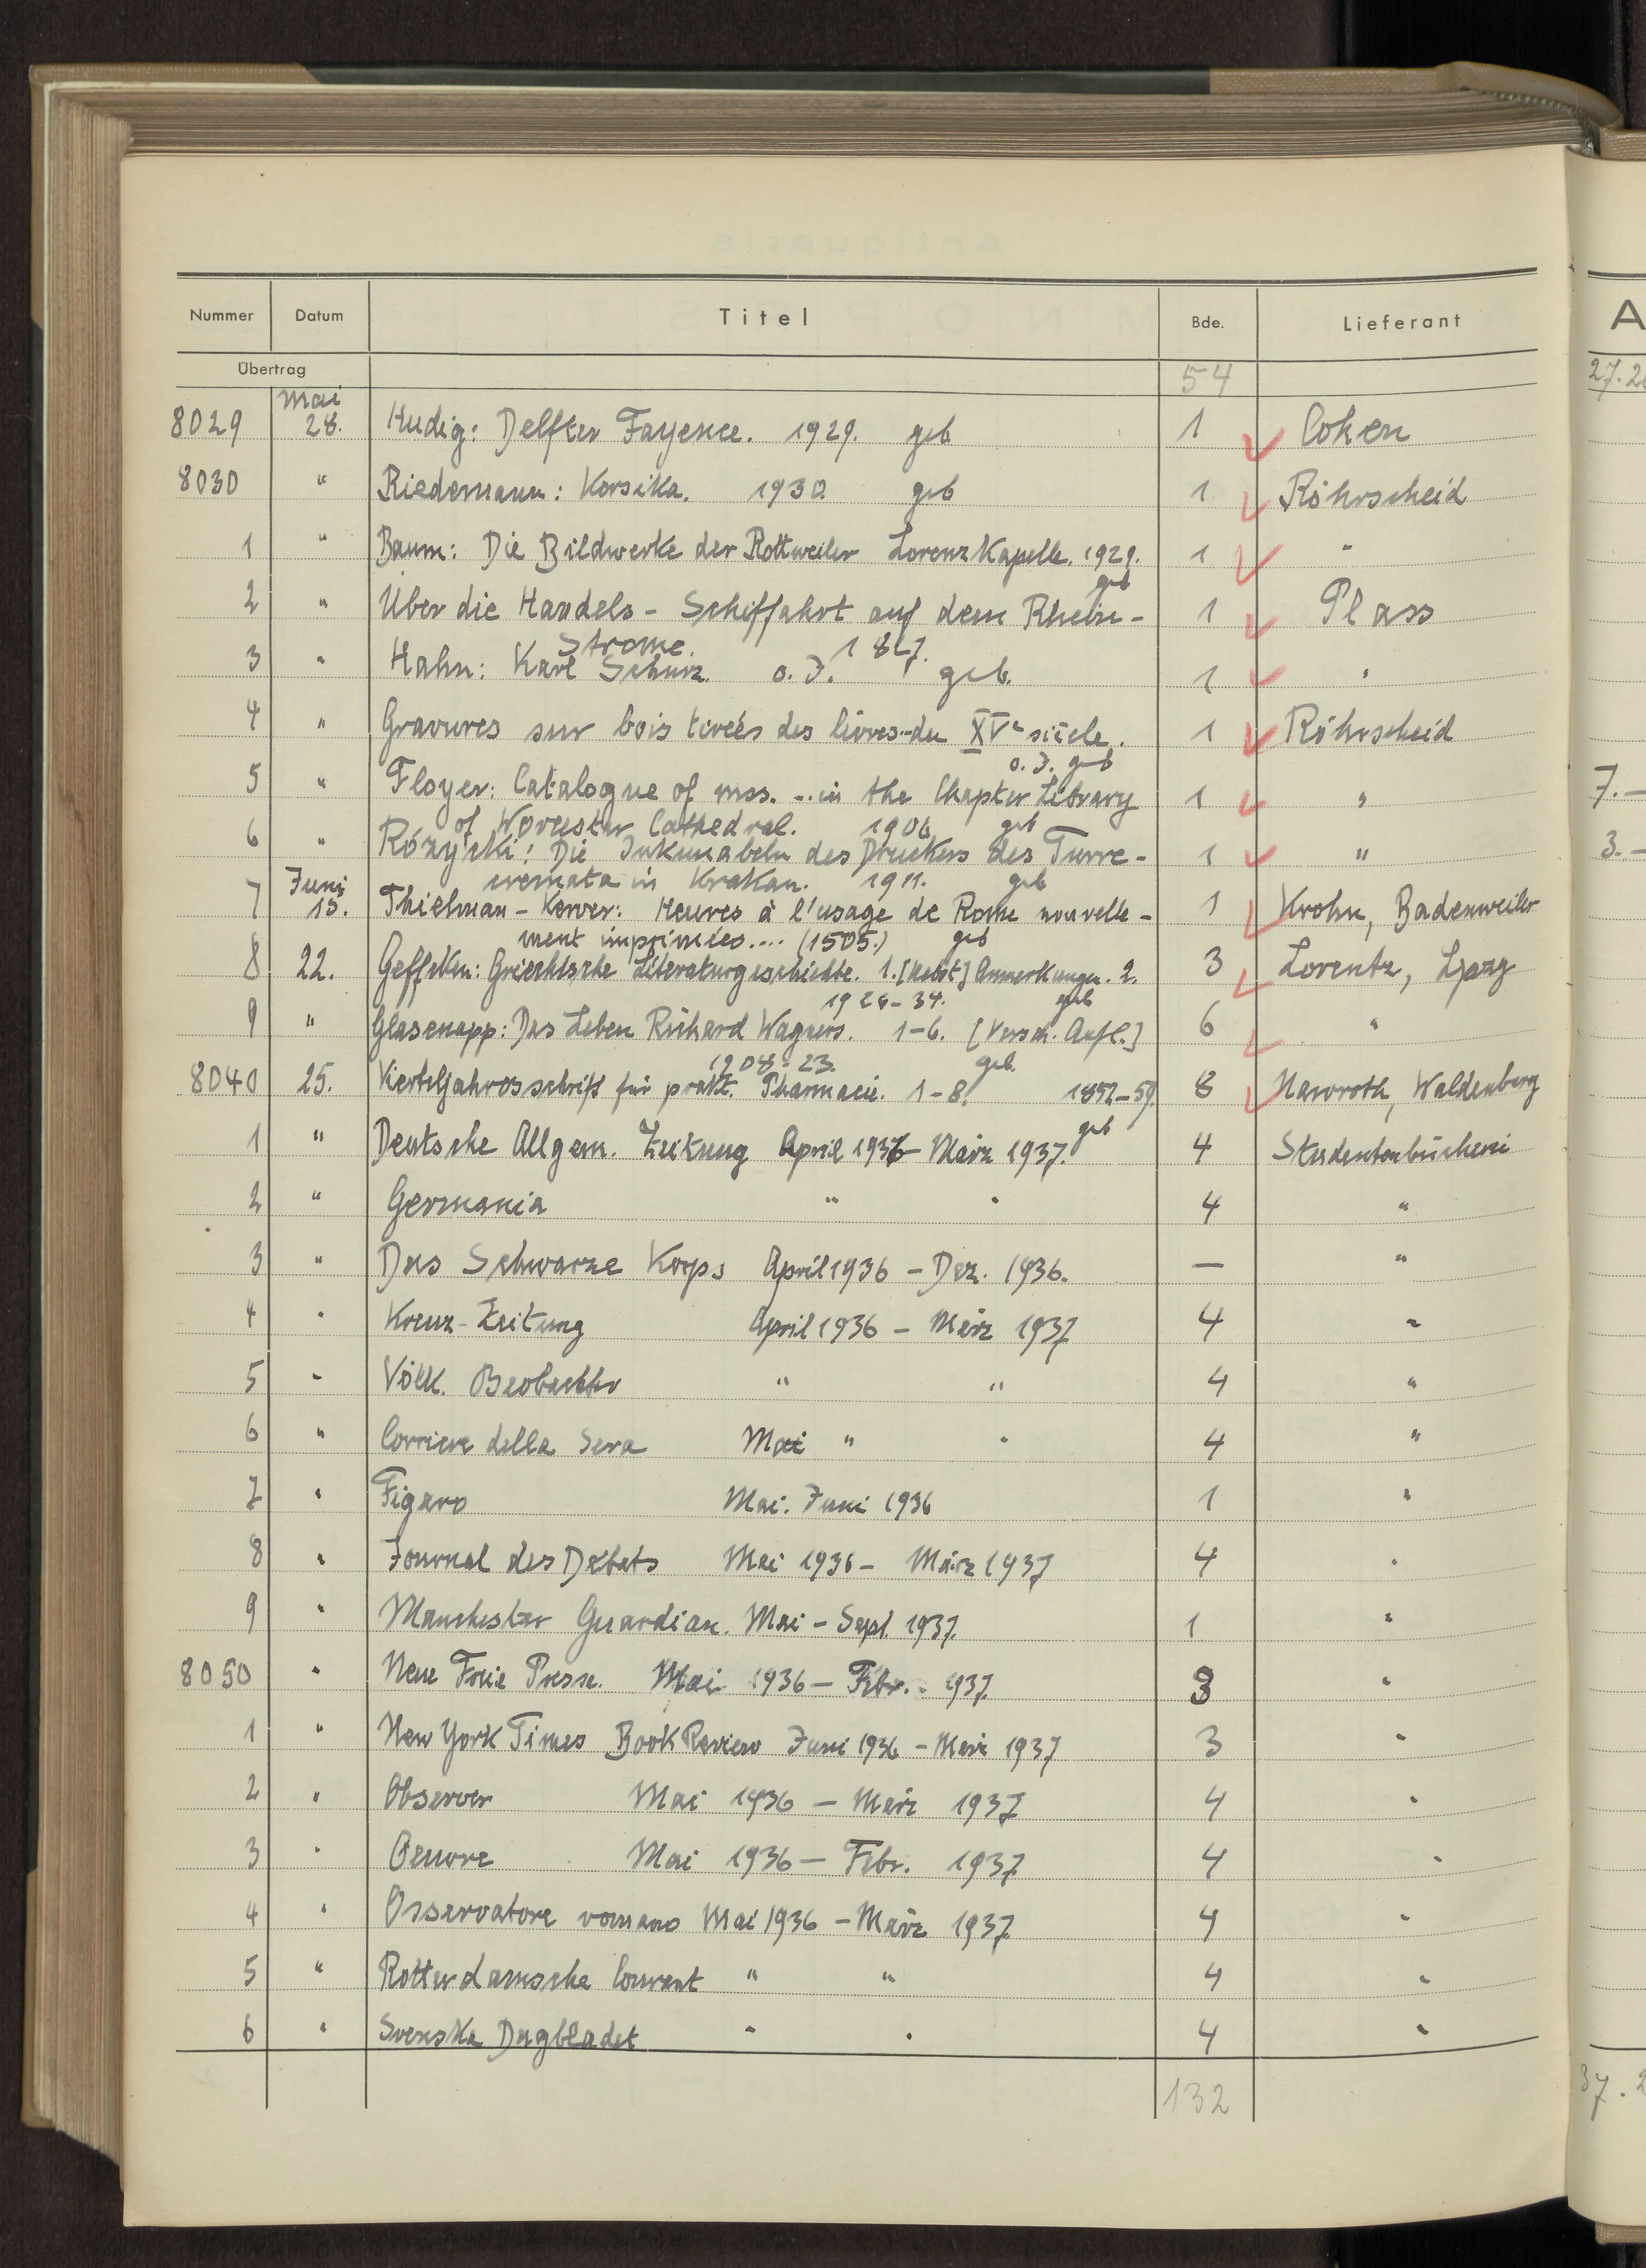 Nummer Datum Titel Bde. Lieferant A
Übertrag 54 27.2
Mai
8029 28. Hudig: Delfter Fayence. 1929. geb 1 Cohen
8030 " Riedemann: Korsika. 1930. geb 1 Röhrscheid
1 " Baum: Die Bildwerke der Rottweiler Lorenzkapelle. 1929. 1 "
geb
2 " Über die Handels-Schiffahrt auf dem Rhein- 1 Plass
Strome. 1827.
3 " Hahn: Karl Schurz. o. J. geb. 1 "
4 " Gravures sur bois tirées des livres..du XVe siècle. 1 Röhrscheid
o. J. geb
5 " Floyer: Catalogue of mss. ... in the Chapter Library 1 " 7.-
of Worcester Cathedral. 1906 geb
6 " Rózycki: Die Inkunabeln des Druckers des Turre- 1 " 3.-
cremata in Krakau. 1911. geb
Juni
7 15. Thielman-Kerver: Heures à l'usage de Rome nouvelle- 1 Krohn, Badenweiler
ment imprimées.... (1505.) geb
8 22. Geffcken: Griechische Literaturgeschichte. 1. [Nebst] Anmerkungen. 2. 3 Lorentz, Lpzg
1926-34. geb
9 " Glasenapp: Das Leben Richard Wagners. 1-6. [Versch. Aufl.] 6 "
1908-23. geb.
8040 25. Vierteljahrosschrift für prakt. Pharmacie. 1-8. 1852-59. 8 Nawroth, Waldenberg
geb
1 " Deutsche Allgem. Zeitung April 1936 - März 1937. 4 Studentenbücherei
2 " Germania " " 4 "
3 " Das Schwarze Korps April 1936 - Dez. 1936. — "
4 " Kreuz-Zeitung April 1936 - März 1937 4 "
5 " Völk. Beobachter " " 4 "
6 " Corriere della Sera Mai " " 4 "
7 " Figaro Mai. Juni 1936 1 "
8 " Journal des Debats Mai 1936 - März 1937 4 "
9 " Manchester Guardian. Mai - Sept. 1937. 1 "
8050 " Neue Freie Presse. Mai 1936 - Febr. 1937. 3 "
1 " New York Times Book Review Juni 1936 - März 1937 3 "
2 " Observer Mai 1936 - März 1937 4 "
3 " Oeuvre Mai 1936 - Febr. 1937 4 "
4 " Osservatore romano Mai 1936 - März 1937. 4 "
5 " Rotterdamsche Courant " " 4 "
6 " Svenska Dagbladet " " 4 "
132 37.2